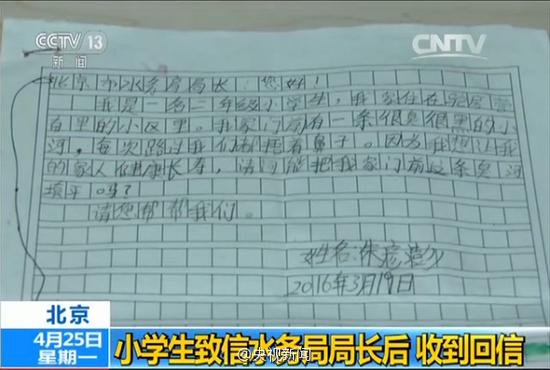 CCTV 13
新闻
CNTV
北京市水务局局长：您好！
我是一名二年级小学生，我家住在
百里的小区里。我家门前有一条很臭很黑的小
河，每次路过我们都捂着鼻子。因为我想让我
的家人健康长寿，请问能把我家门前这条臭河
填平吗？
请您帮帮我们。
姓名：朱彦
2016年3月19日
北京
4月25日
星期一
小学生致信水务局局长后 收到回信
@央视新闻